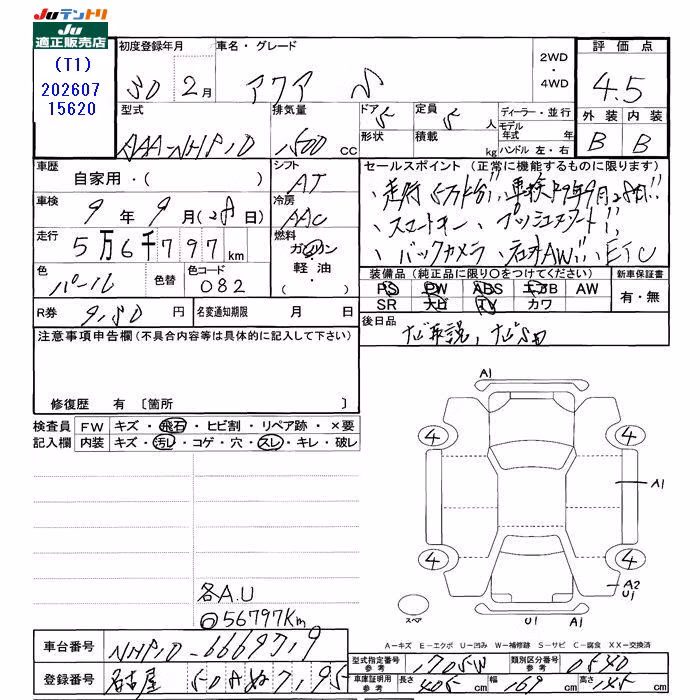 JUテントリ
JU
適正販売店
(T1)
202607
15620
初度登録年月
30 2月
車名・グレード
アクア S
2WD
・
4WD
評価点
4.5
外装 内装
B B
型式
AAA-NHP10
排気量
1500 CC
ドア 5
形状
定員 5 人
積載 kg
ディーラー・並行
モデル年式 年
ハンドル 左・右
車歴
自家用・( )
シフト
AT
車検
9年 9月(28日)
冷房
AAC
走行
5万6千797km
燃料
ガソリン
軽油・
色
パール
色替
色コード
082
R券
9,80 円
名変通知期限 月 日
セールスポイント (正常に機能するものに限ります)
・走行5万km台!!・車検R9年9月28日!!
・スマートキー・プッシュスタート!!
・バックカメラ・社外AW!!・ETC
装備品(純正品に限り○をつけてください)
新車保証書
PS PW ABS エアB AW
SR ナビ TV カワ
有・無
後日品
ナビ取説、ナビSD
注意事項申告欄(不具合内容等は具体的に記入して下さい)
修復歴 有 〔箇所 〕
検査員記入欄
FW キズ・飛石・ヒビ割・リペア跡・×要
内装 キズ・汚レ・コゲ・穴・スレ・キレ・破レ
各A.U
◎56797Km
A1
4 4
A1
4 4
A2
U1
スペア
U1 A1
A-キズ E-エクボ U-凹み W-補修跡 S-サビ C-腐食 XX-交換済
車台番号
NHP10-6669719
登録番号
名古屋 508 ぬ 7195
型式指定番号参考
17054
類別区分番号
0540
車庫証明用参考
長さ 405 cm 幅 169 cm 高さ 145 cm